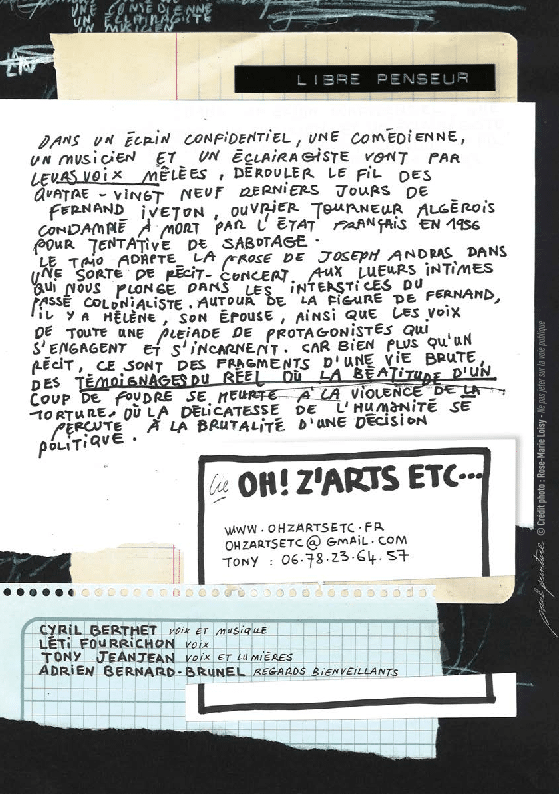 UNE COMÉDIENNE
UN ÉCLAIRAGISTE
UN MUSICIEN
LIBRE PENSEUR
DANS UN ÉCRIN CONFIDENTIEL, UNE COMÉDIENNE,
UN MUSICIEN ET UN ÉCLAIRAGISTE VONT PAR
LEURS VOIX MÊLÉES, DÉROULER LE FIL DES
QUATRE-VINGT NEUF DERNIERS JOURS DE
FERNAND IVETON, OUVRIER TOURNEUR ALGÉROIS
CONDAMNÉ À MORT PAR L'ÉTAT FRANÇAIS EN 1956
POUR TENTATIVE DE SABOTAGE.
LE TRIO ADAPTE LA PROSE DE JOSEPH ANDRAS DANS
UNE SORTE DE RÉCIT-CONCERT, AUX LUEURS INTIMES
QUI NOUS PLONGE DANS LES INTERSTICES DU
PASSÉ COLONIALISTE. AUTOUR DE LA FIGURE DE FERNAND,
IL Y A HÉLÈNE, SON ÉPOUSE, AINSI QUE LES VOIX
DE TOUTE UNE PLEIADE DE PROTAGONISTES QUI
S'ENGAGENT ET S'INCARNENT. CAR BIEN PLUS QU'UN
RÉCIT, CE SONT DES FRAGMENTS D'UNE VIE BRUTE,
DES TÉMOIGNAGES DU RÉEL OÙ LA BÉATITUDE D'UN
COUP DE FOUDRE SE HEURTE À LA VIOLENCE DE LA
TORTURE. OÙ LA DÉLICATESSE DE L'HUMANITÉ SE
PERCUTE À LA BRUTALITÉ D'UNE DÉCISION
POLITIQUE.
Cie OH! Z'ARTS ETC...
WWW.OHZARTSETC.FR
OHZARTSETC@GMAIL.COM
TONY : 06.78.23.64.57
CYRIL BERTHET VOIX ET MUSIQUE
LÉTI FOURRICHON VOIX
TONY JEANJEAN VOIX ET LUMIÈRES
ADRIEN BERNARD-BRUNEL REGARDS BIENVEILLANTS
© Crédit photo : Rose-Marie Loisy - Ne pas jeter sur la voie publique